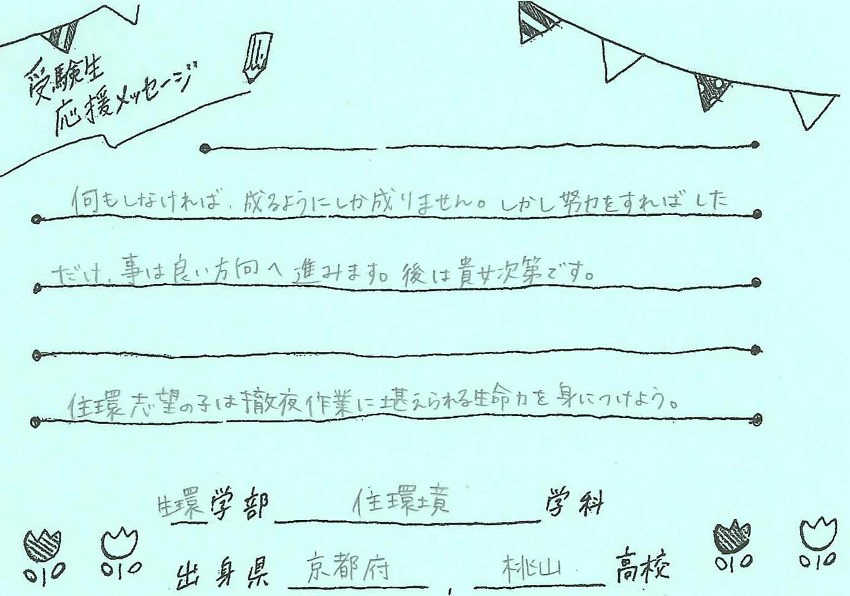 受験生
応援メッセージ
何もしなければ、成るようにしか成りません。しかし努力をすればした
だけ、事は良い方向へ進みます。後は貴女次第です。
住環志望の子は徹夜作業に堪えられる生命力を身につけよう。
生環学部 住環境 学科
出身県 京都府 , 桃山 高校